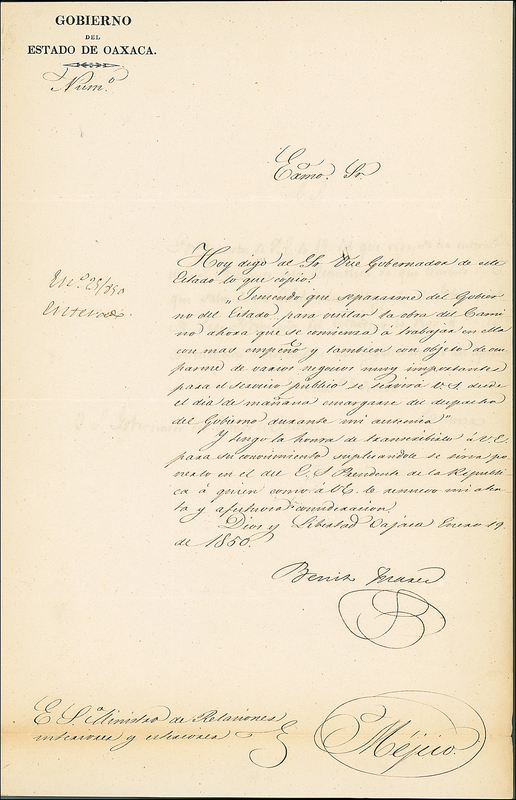 GOBIERNO
DEL
ESTADO DE OAXACA.
Num.º
Exmo. Sr.
En.º 25/850
Enterado.
Hoy digo al Sr. Vice Gobernador de este
Estado lo que cópio.
„Teniendo que separarme del Gobier
no del Estado, para visitar la obra del Cami
no ahora que se comienza á trabajar en ella
con mas empeño y tambien con objeto de ocu
parme de varios negocios muy importantes
para el servicio público se servirá V.S. desde
el dia de mañana encargarse del despacho
del Gobierno durante mi ausencia"
Y tengo la honra de transcribirlo á V.E.
para su conocimiento suplicandole se sirva po
nerlo en el del E. S. Presidente de la Repúbli
ca á quien como á V.E. le renuevo mi aten
ta y afectuosa consideracion.
Dios y Libertad Oajaca Enero 19
de 1850.
Benito Juarez
E. S.or Ministro de Relaciones
interiores y esteriores
Méjico.